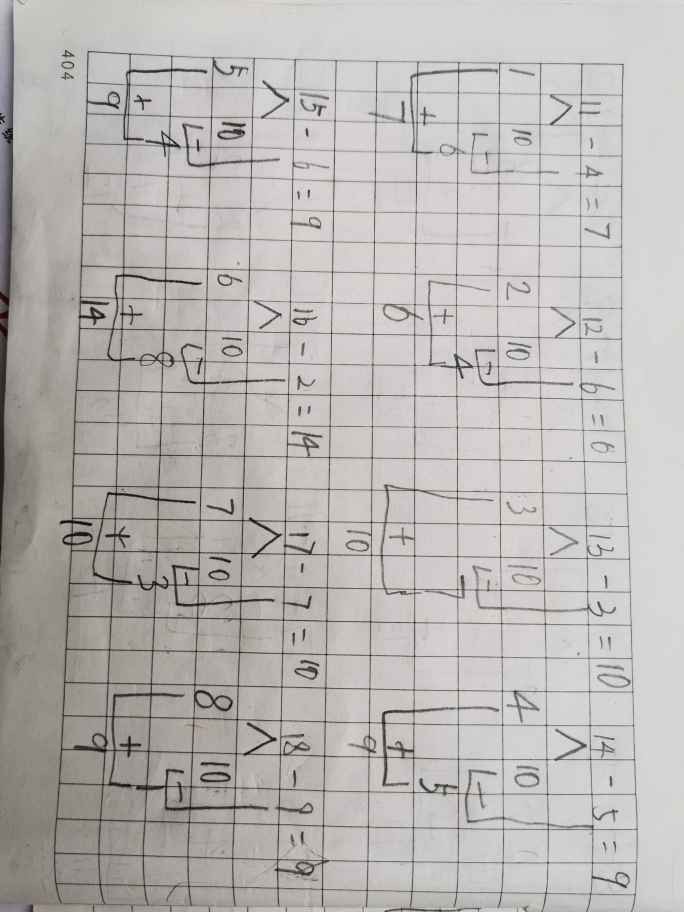 11-4=7 12-6=6 13-3=10 14-5=9
1 10 2 10 3 10 4 10
- - - -
6 4 5
+ + + +
7 6 10 9
15-6=9 16-2=14 17-7=10 18-9=9
5 10 6 10 7 10 8 10
- - - -
4 8 3
+ + + +
9 14 10 9
404